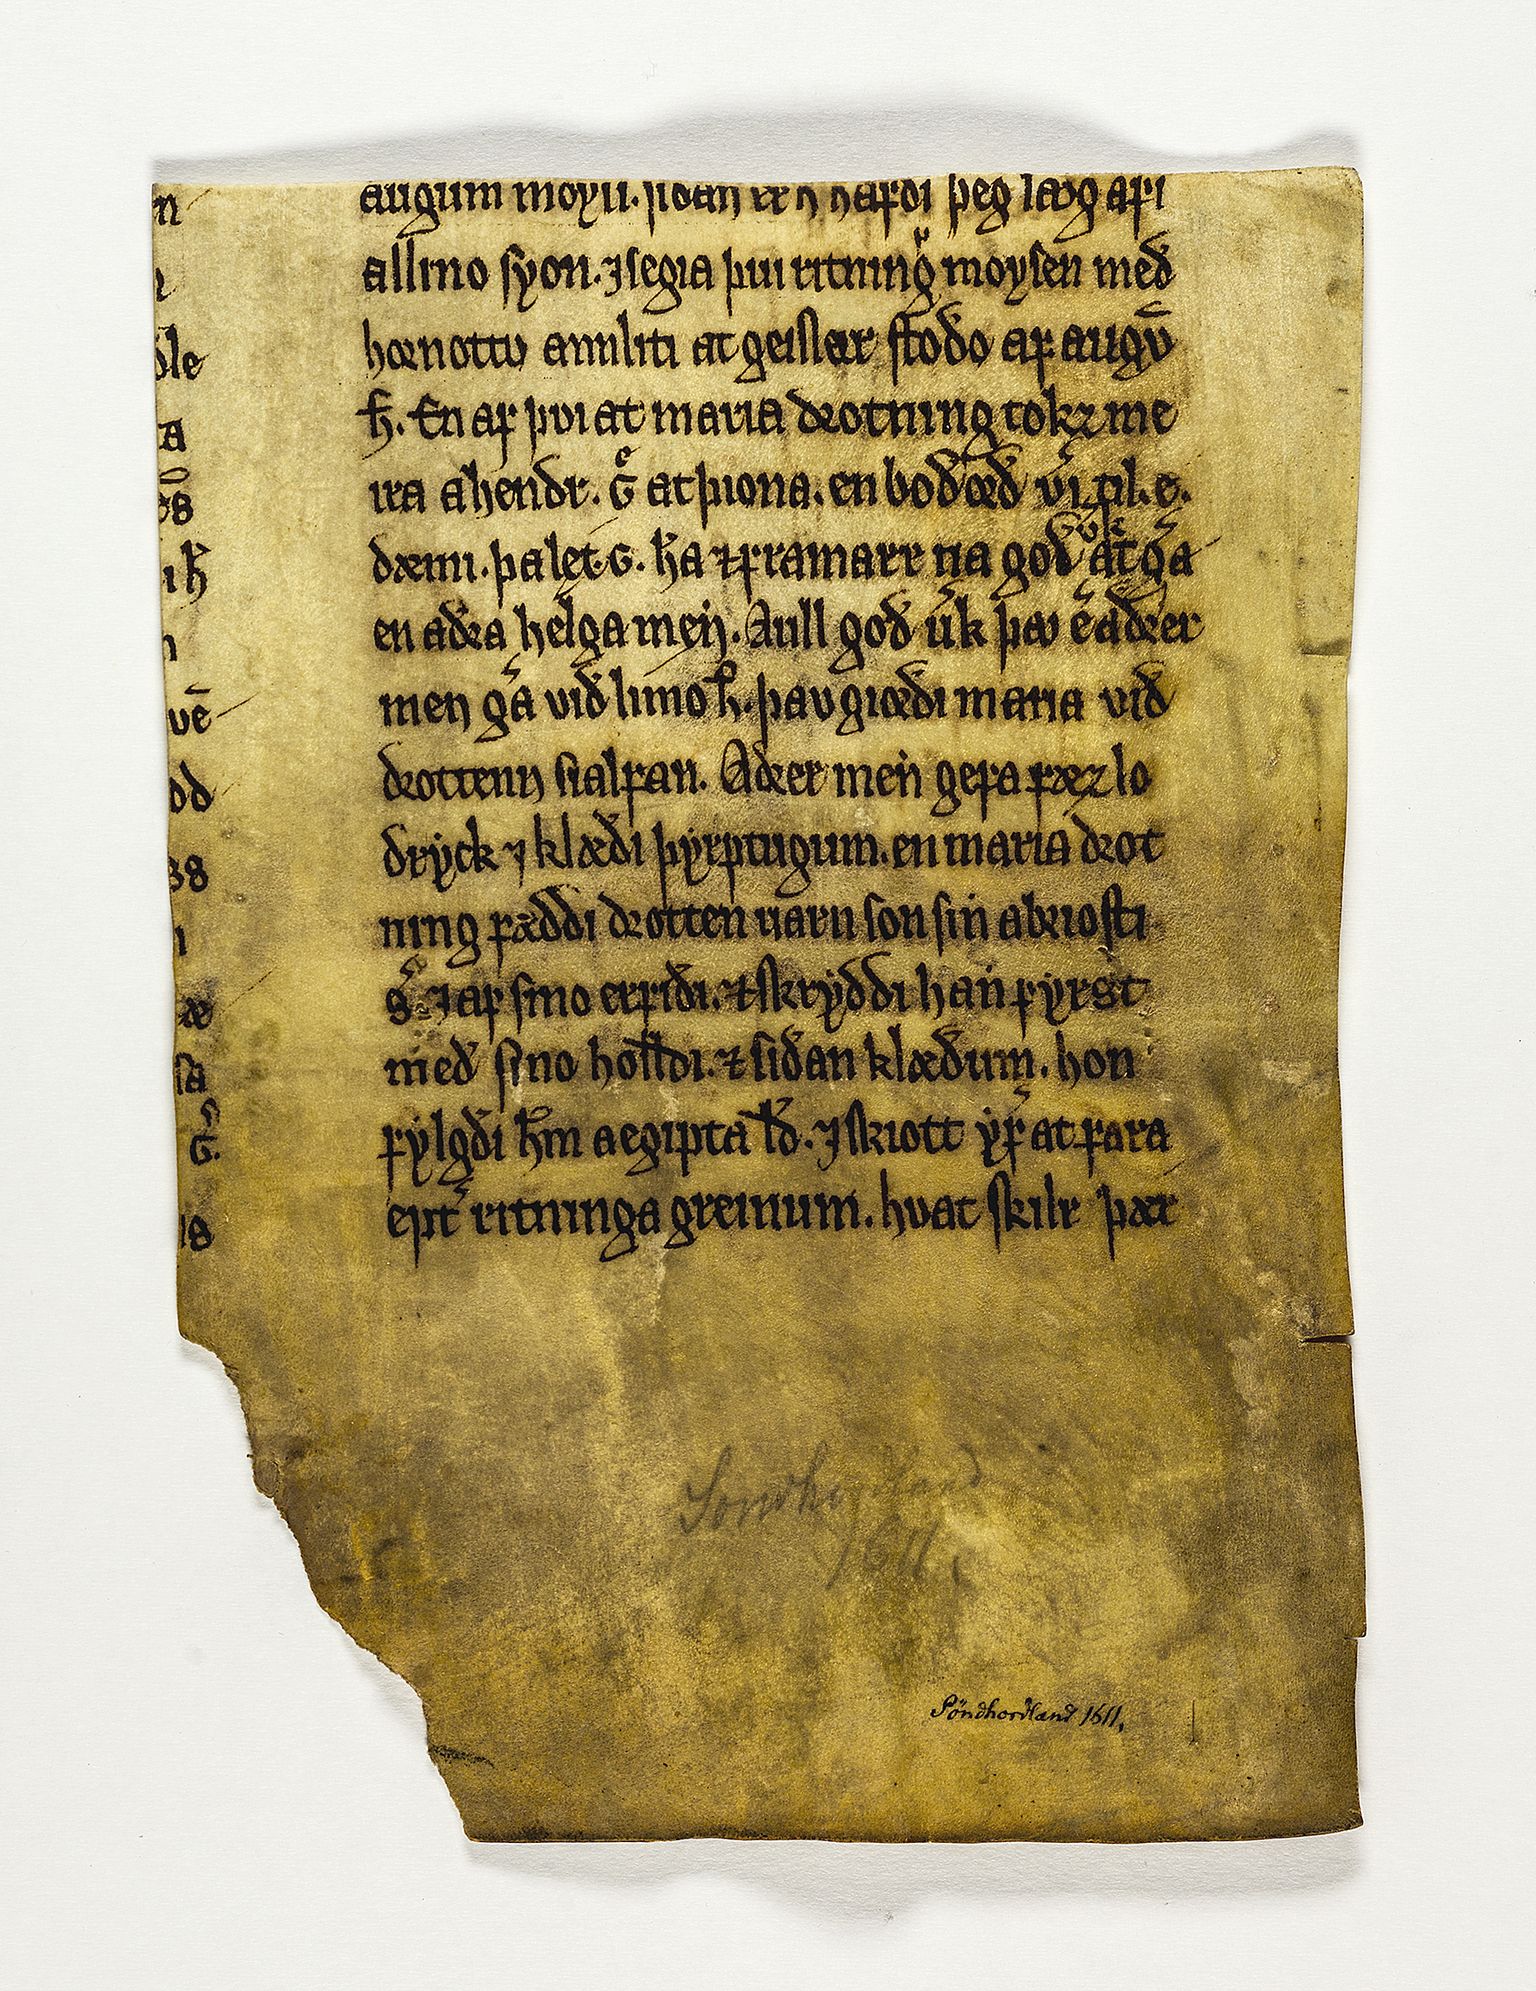 n
le
a
es
i ħ
n
vē
dd
38
ı
æ
sa
G.
18
augum moysi. siðan er h hafdi þeg laug afi
allino syon. ⁊ segia þui ritning moysen með
hornottu annliti at geislar stoðo af augū
ħ. En af þui at maria drotning tok ⁊ me
ira a hendr. G at þiona. en boðorð til. e.
dæmi. þa let. G. ha ⁊ framarr na goð at ga
en aðra helga men. Aull goð uk þau ē aðrer
men ga við limo ħ. þau giorði maria við
drottenn sialfan. Aðrer men gefa fæz lo
dryck ⁊ klæði þyrptugum. en maria drot
ning fæddi drotten uarn son sin a briosti
s. ⁊ af sino erfiði. ⁊ skryddi han fyrst
með sino holldi. ⁊ siðan klæðum. hon
fylgði hm aegipta ld. ⁊ skiott yf at fara
ept ritninga greinum. huat skilr þær
Söndhordland
1611,
Söndhordland 1611,